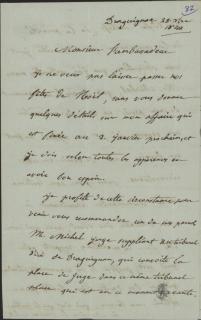 32
Draguignan 22 xbre
1840
Monsieur l'ambassadeur
je ne veux pas laisser passer nos
fêtes de Noël, sans vous donner
quelques détails sur mon affaire qui
est fixée au 2 janvier prochain, et
je dois selon toutes les apparences en
avoir bon espoir.
je profite de cette circonstance pour
venir vous recommander un de nos
M. Michel juge suppléant au tribunal
de Draguignan, qui convoite la
place de juge dans ce même tribunal
place qui est en ce moment vacante,